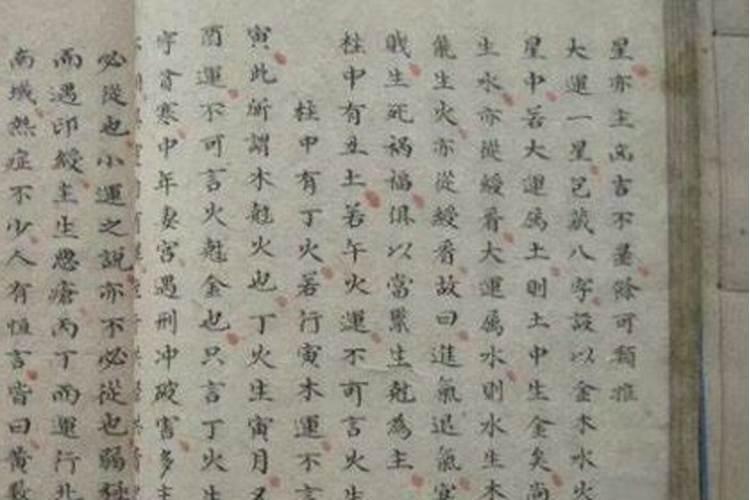 星亦主凶言不尽馀可类推
大運一星㠯歲八字設以金木水火
星中若大運属土則土中生金矣尚
生水亦從緩看大運属水則水生木
能生火亦從緩看故曰進氣退氣
戝生死祸福俱以當累生尅為主
柱中有丑土若午火運不可言火生
柱中有丁火若行寅木運不言
寅此所謂木尅火也丁火生寅月
酉運不可言火尅金也只言丁火生
字貪寒中年妻宫遇刑冲破害多主
必從也小運之説亦不必從也
而遇印綬主生瘡丙丁而運行北
南域然症不少人有恒言皆曰